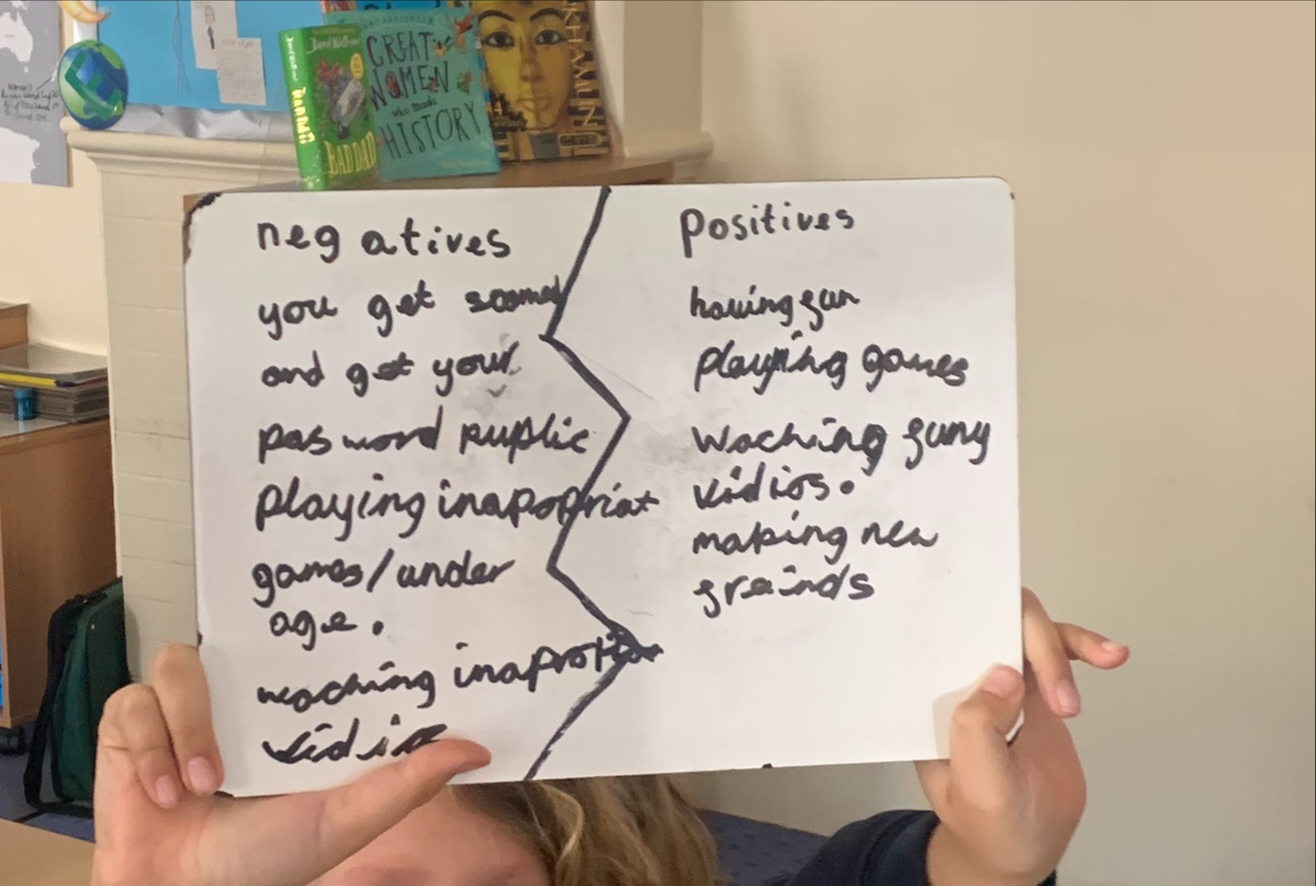 David Walliams
BAD DAD
GREAT
WOMEN
who made
HISTORY
negatives
you get scamed
and get your
pasword puplic
playing inapopriat
games/under
age.
waching
vidio
positives
having fun
playing games
waching funy
vidios.
making new
freinds